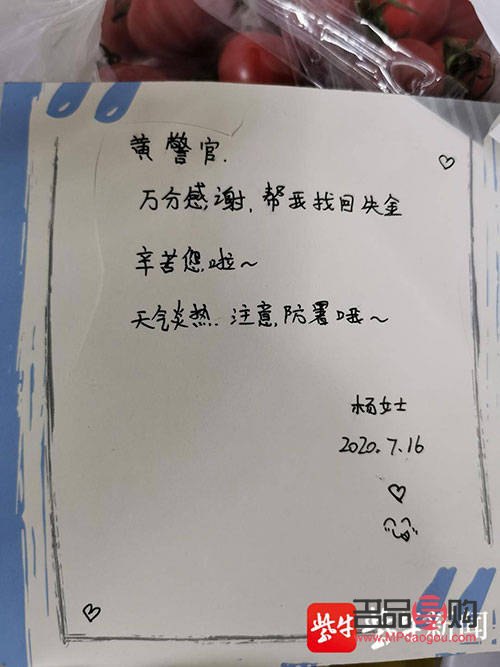 黄警官.
万分感谢,帮我找回失金
辛苦您啦~
天气炎热.注意防署哦~
杨女士
2020.7.16
紫牛
新闻
名品导购
www.MPdaogou.com